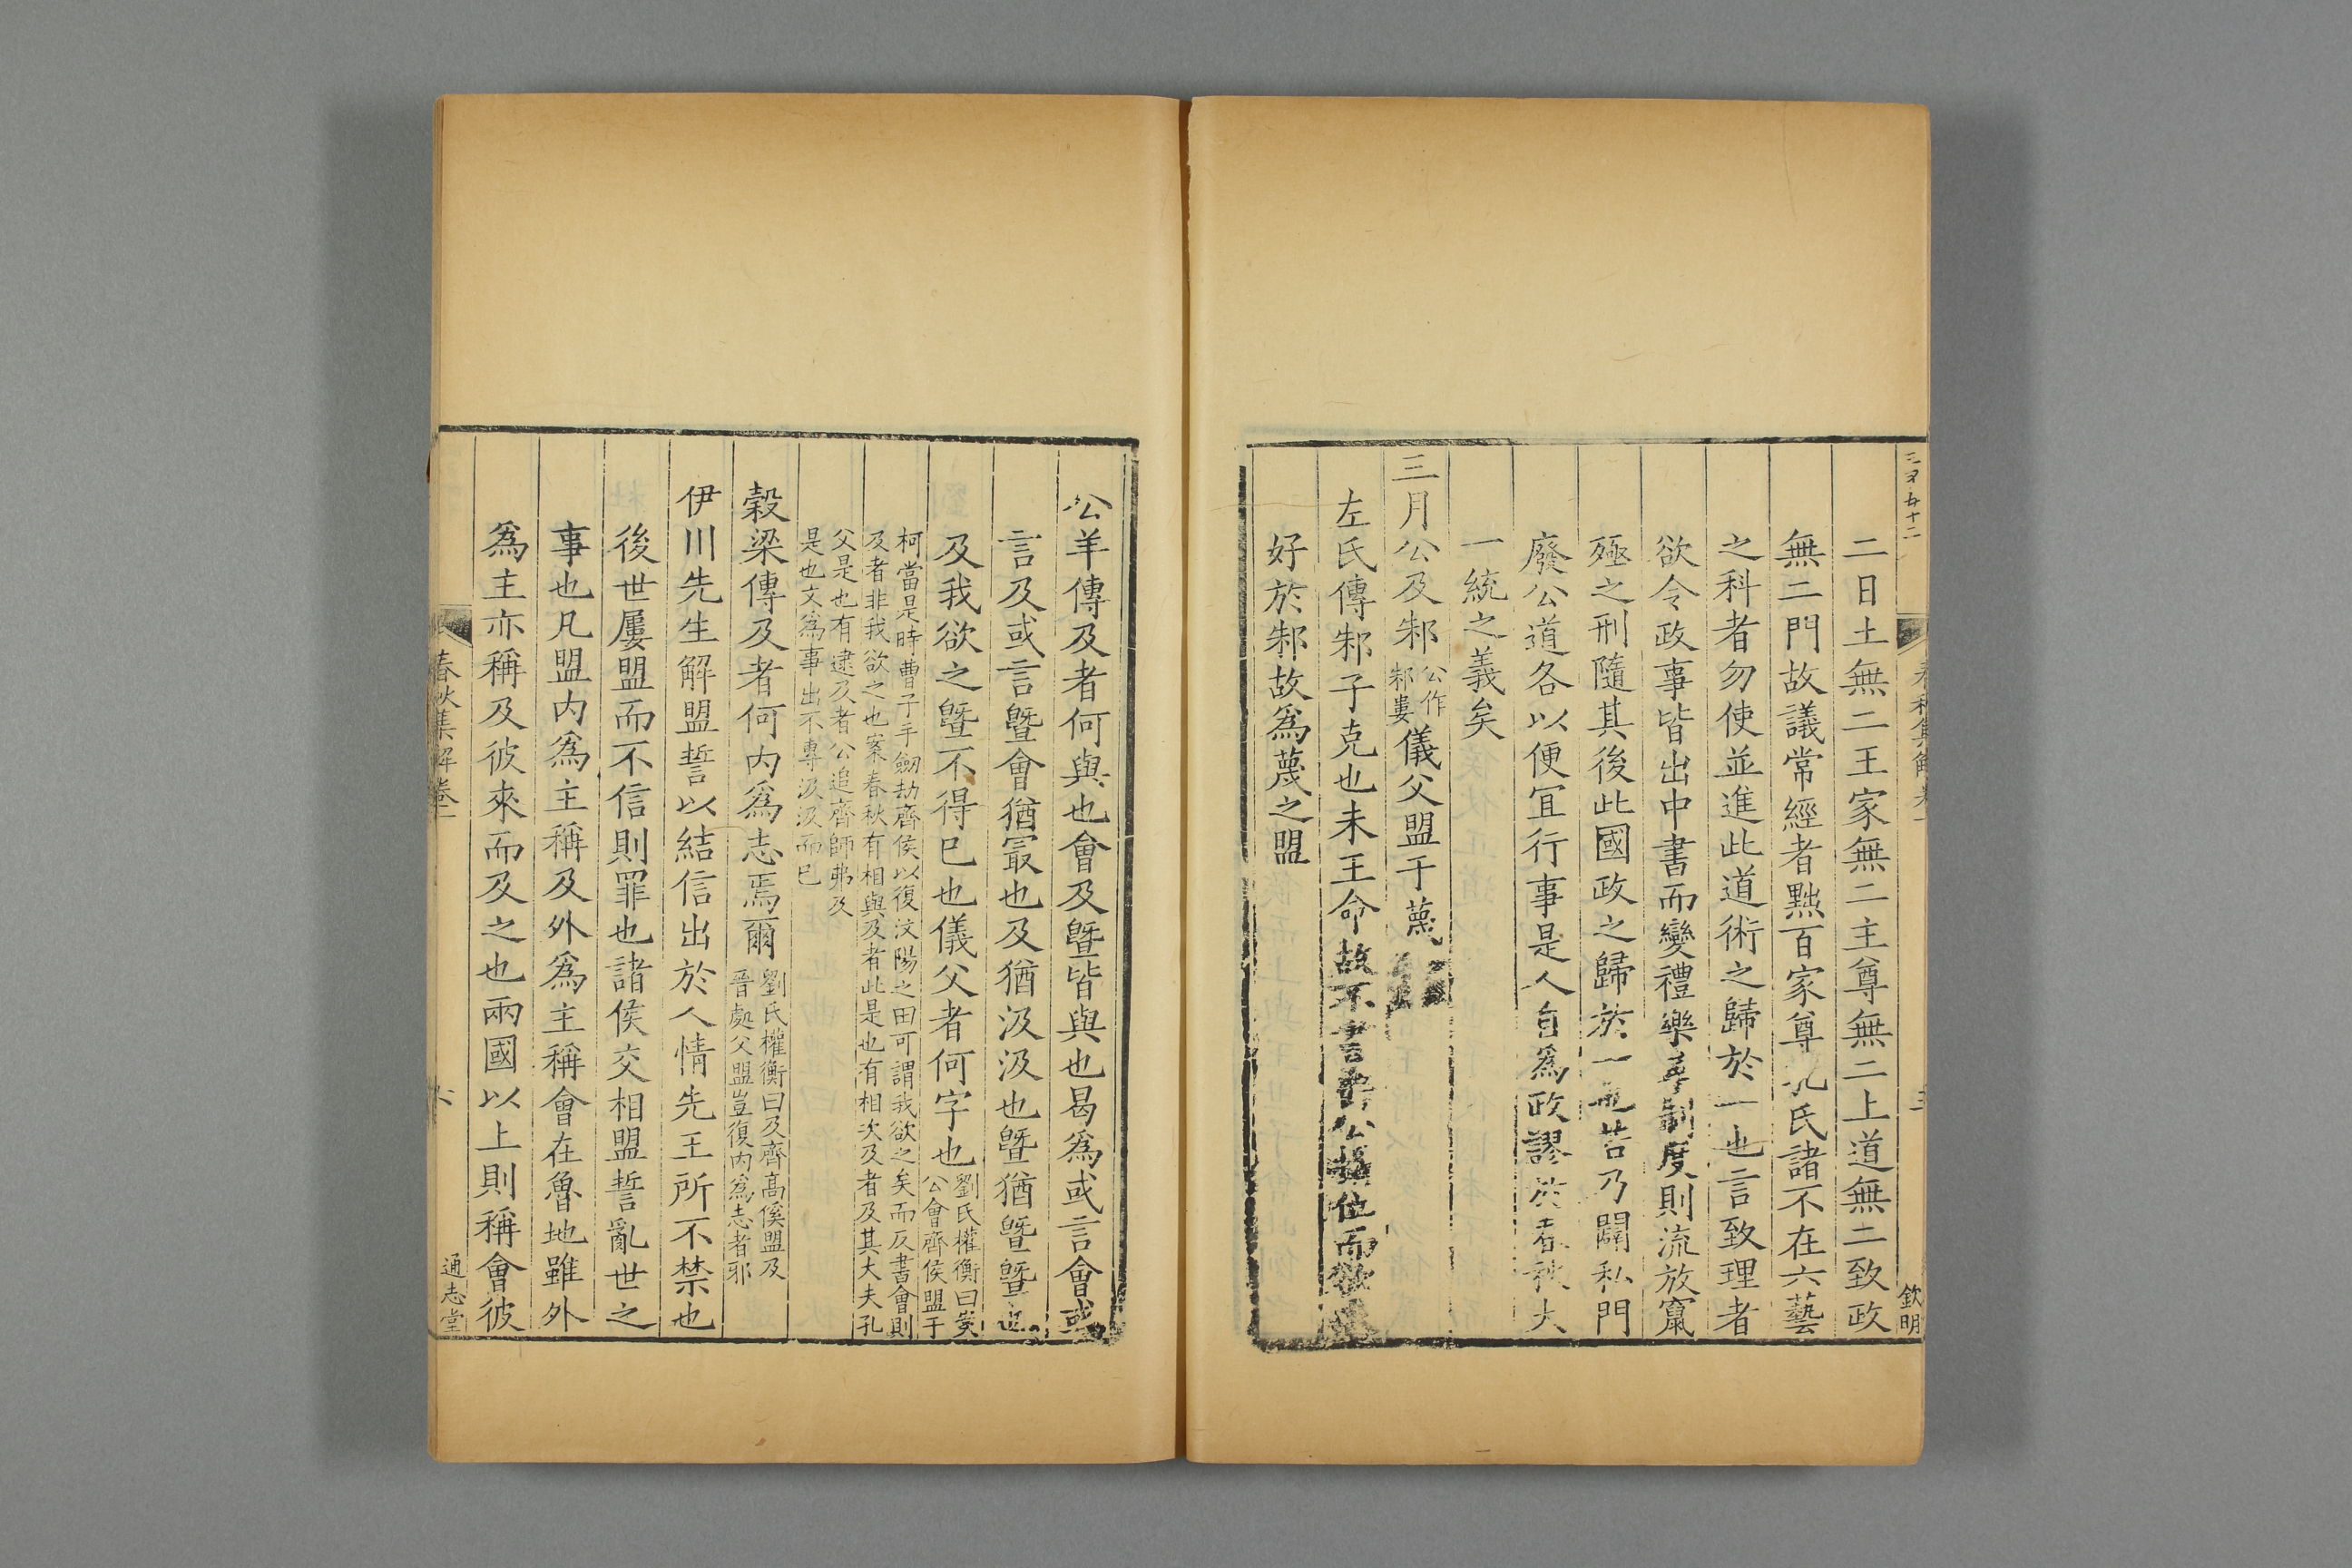 二日土無二王家無二主尊無二上道無二致政
無二門故議常經者黜百家尊孔氏諸不在六藝
之科者勿使並進此道術之歸於一也言致理者
欲令政事皆出中書而變禮樂 制度則流放竄
殛之刑隨其後此國政之歸於一 若乃闢私門
廢公道各以便宜行事是人自為政謬於春秋大
一統之義矣
三月公及邾公作邾婁儀父盟于蔑
左氏傳邾子克也未王命故不書 公攝位而欲
好於邾故爲蔑之盟
欽明
公羊傳及者何與也會及曁皆與也曷爲或言會或
言及或言曁會猶冣也及猶汲汲也曁猶曁曁也
及我欲之曁不得已也儀父者何字也劉氏權衡曰 公會齊侯盟于
柯當是時曹子手劒劫齊侯以復汶陽之田可謂我欲之矣而反書會則
及者非我欲之也案春秋有相與及者此是也有相次及者及其大夫孔
父是也有逮及者公追齊師弗及
是也文爲事出不專汲汲而已
榖梁傳及者何内爲志焉爾劉氏權衡曰及齊高傒盟及晉處父盟豈復内爲志者邪
伊川先生解盟誓以結信出於人情先王所不禁也
後世屢盟而不信則罪也諸侯交相盟誓亂世之
事也凡盟内爲主稱及外爲主稱會在魯地雖外
爲主亦稱及彼來而及之也兩國以上則稱會彼
春秋集解卷一
六
通志堂